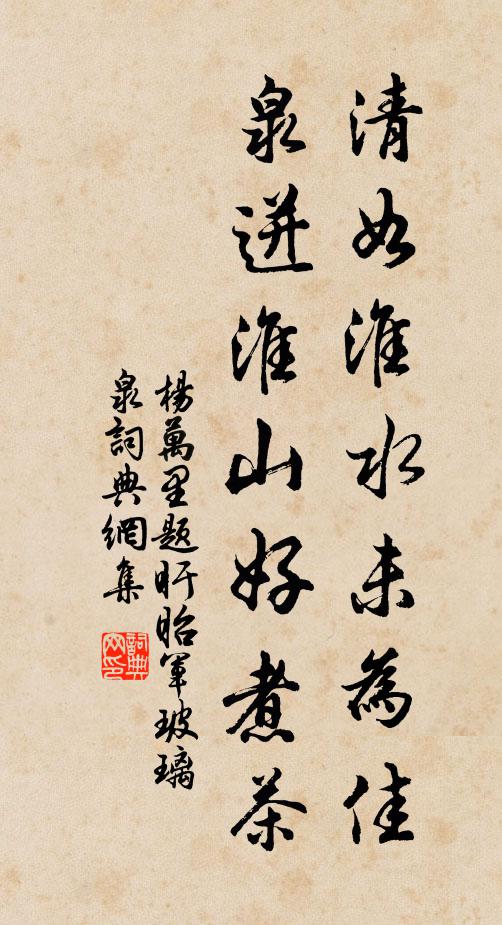 清如淮水未為佳
泉迸淮山好煮茶
楊萬里題盱眙軍玻璃
泉詞典網集
詞典
网印